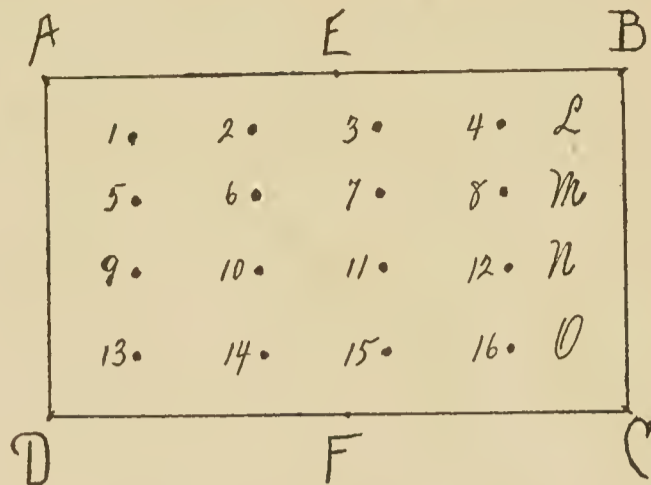 A E B
1 2 3 4 L
5 6 7 8 M
9 10 11 12 N
13 14 15 16 O
D F C